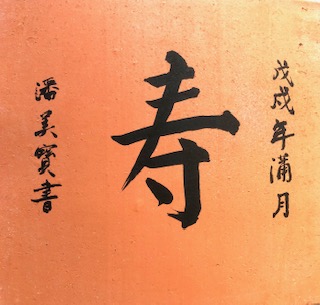 戊戌年蒲月
寿
潘美寳書